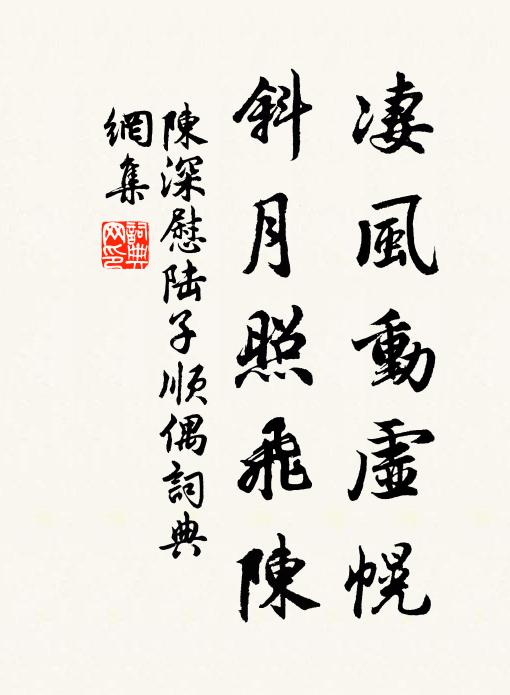 凄風動虛幌
斜月照飛陳
陳深慰陆子顺偶詞典
網集
詞典
网印